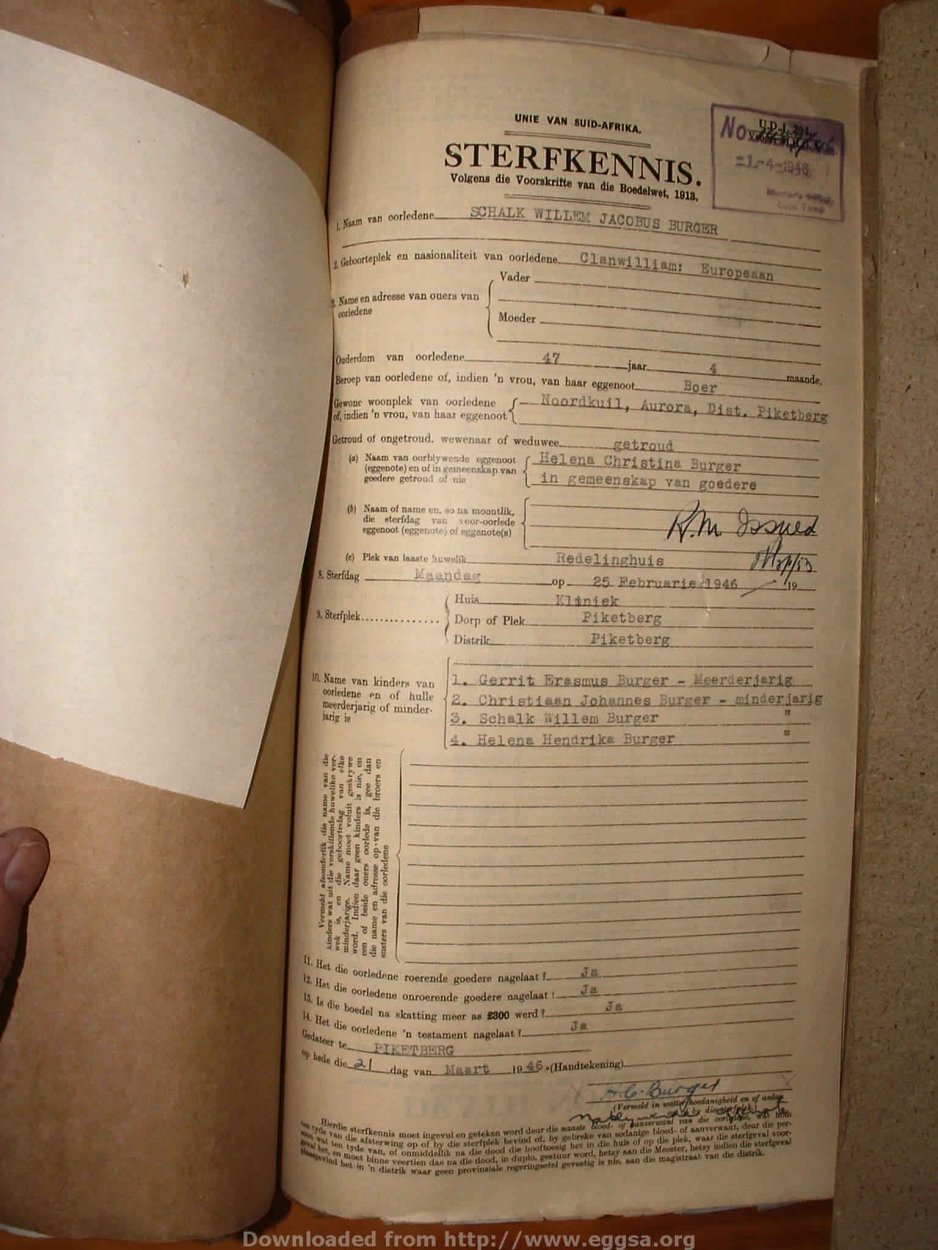 UNIE VAN SUID-AFRIKA.
STERFKENNIS.
Volgens die Voorskrifte van die Boedelwet, 1913.
No
=1.-4-1946
1. Naam van oorledene SCHALK WILLEM JACOBUS BURGER
2. Geboorteplek en nasionaliteit van oorledene Clanwilliam: Europeaan
3. Name en adresse van ouers van oorledene
Vader
Moeder
Ouderdom van oorledene 47 jaar 4 maande.
Beroep van oorledene of, indien 'n vrou, van haar eggenoot Boer
Gewone woonplek van oorledene of, indien 'n vrou, van haar eggenoot Noordkuil, Aurora, Dist. Piketberg
Getroud of ongetroud, wewenaar of weduwee getroud
(a) Naam van oorblywende eggenoot Helena Christina Burger
(eggenote) en of in gemeenskap van goedere getroud of nie in gemeenskap van goedere
(b) Naam of name en, so na moontlik, die sterfdag van voor-oorlede eggenoot (eggenote) of eggenote(s)
R.M Issued
(c) Plek van laaste huwelik Redelinghuis
8. Sterfdag Maandag op 25 Februarie 1946 19
9. Sterfplek
Huis Kliniek
Dorp of Plek Piketberg
Distrik Piketberg
10. Name van kinders van oorledene en of hulle meerderjarig of minderjarig is
1. Gerrit Erasmus Burger - Meerderjarig
2. Christiaan Johannes Burger - minderjarig
3. Schalk Willem Burger "
4. Helena Hendrika Burger "
Vermeld afsonderlik die name van die
kinders wat uit die verskillende huwelike ver-
wek is, en die geboortedag van elke
minderjarige. Name moet voluit geskrywe
word. Indien daar geen kinders is nie, en
een of beide ouers oorlede is, gee dan
die name en adresse op van die broers en
susters van die oorledene
11. Het die oorledene roerende goedere nagelaat? Ja
12. Het die oorledene onroerende goedere nagelaat? Ja
13. Is die boedel na skatting meer as £300 werd? Ja
14. Het die oorledene 'n testament nagelaat? Ja
Gedateer te PIKETBERG
op hede die 21 dag van Maart 1946. (Handtekening)
H.C. Burger
(Vermeld in watter hoedanigheid en of
Hierdie sterfkennis moet ingevul en geteken word deur die naaste bloed- of aanverwant van die
ten tyde van die afsterwing op of by die sterfplek bevind of, by gebreke van sodanige bloed- of aanverwant, deur die per-
ten tyde van, of onmiddellik na die dood die hooftoesig het in die huis of op die plek, waar die sterfgeval voor-
geval het, en moet binne veertien dae na die dood, in duplo, gestuur word, hetsy aan die Meester, hetsy indien die sterfgeval
plaasgevind het in 'n distrik waar geen provinsiale regeringsetel gevestig is nie, aan die magistraat van die distrik.
Downloaded from http://www.eggsa.org